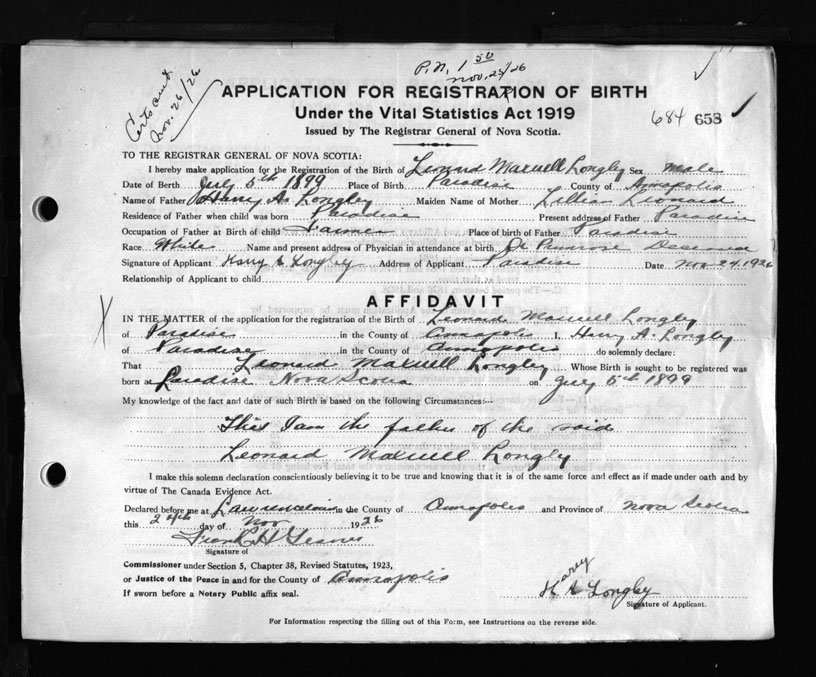 P.N. 1 50
Nov. 25/26
Certs and
Nov. 26/26
APPLICATION FOR REGISTRATION OF BIRTH
Under the Vital Statistics Act 1919
684 658
Issued by The Registrar General of Nova Scotia.
TO THE REGISTRAR GENERAL OF NOVA SCOTIA:
I hereby make application for the Registration of the Birth of Leonard Maxwell Longley Sex male
Date of Birth July 5th 1899 Place of Birth Paradise County of Annapolis
Name of Father Harry A. Longley Maiden Name of Mother Lillian Leonard
Residence of Father when child was born Paradise Present address of Father Paradise
Occupation of Father at Birth of child Farmer Place of birth of Father Paradise
Race White Name and present address of Physician in attendance at birth Dr Primrose Deceased
Signature of Applicant Harry A Longley Address of Applicant Paradise Date Nov 24 1926
Relationship of Applicant to child
AFFIDAVIT
IN THE MATTER of the application for the registration of the Birth of Leonard Maxwell Longley
of Paradise in the County of Annapolis I, Harry A. Longley
of Paradise in the County of Annapolis do solemnly declare:
That Leonard Maxwell Longley Whose Birth is sought to be registered was
born at Paradise Nova Scotia on July 5th 1899
My knowledge of the fact and date of such Birth is based on the following Circumstances:—
This I am the father of the said
Leonard Maxwell Longley
I make this solemn declaration conscientiously believing it to be true and knowing that it is of the same force and effect as if made under oath and by
virtue of The Canada Evidence Act.
Declared before me at Lawrencetown in the County of Annapolis and Province of Nova Scotia
this 24th day of Nov 1926
Frank H
Signature of
Commissioner under Section 5, Chapter 38, Revised Statutes, 1923,
or Justice of the Peace in and for the County of Annapolis
If sworn before a Notary Public affix seal.
Harry
H A Longley
Signature of Applicant.
For Information respecting the filling out of this Form, see Instructions on the reverse side.